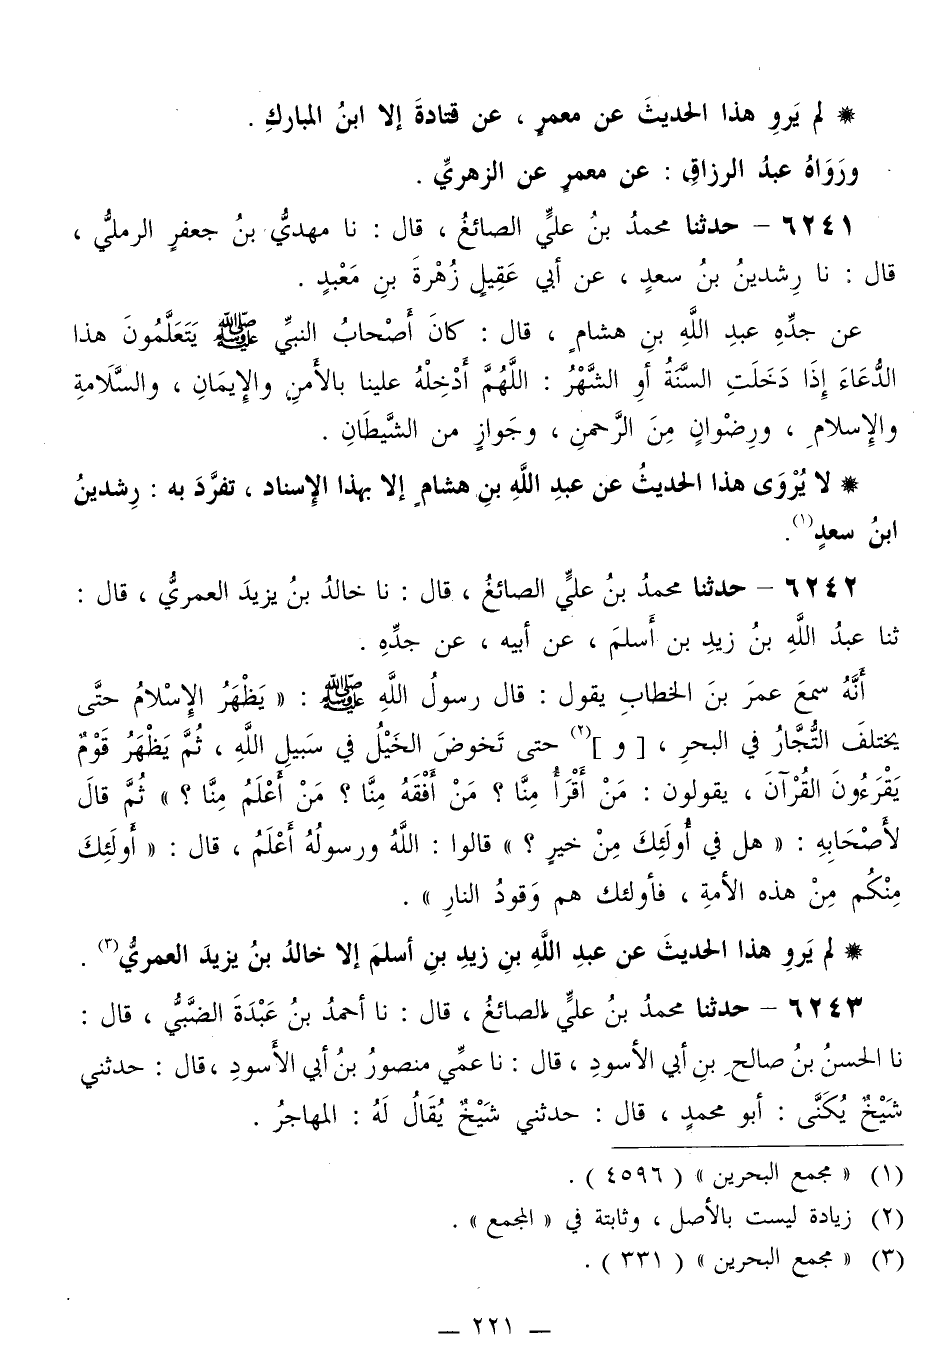 * لم يَروِ هذا الحديثَ عن معمرٍ ، عن قتادةَ إلا ابنُ المباركِ .
ورَوَاهُ عبدُ الرزاقِ : عن معمرٍ عن الزهريِّ .
٦٢٤١ – حدثنا محمدُ بنُ عليٍّ الصائغُ ، قال : نا مهديُّ بنُ جعفرٍ الرمليُّ ،
قال : نا رِشدينُ بنُ سعدٍ ، عن أبي عَقِيلٍ زُهْرةَ بنِ مَعْبدٍ .
عن جدِّهِ عبدِ اللَّهِ بنِ هشامٍ ، قال : كانَ أَصْحابُ النبيِّ ﷺ يَتَعَلَّمُونَ هذا
الدُّعَاءَ إِذَا دَخَلَتِ السَّنَةُ أوِ الشَّهْرُ : اللَّهُمَّ أَدْخِلْهُ علينا بالأَمنِ والإِيمَانِ ، والسَّلَامةِ
والإِسلامِ ، ورِضْوانٍ مِنَ الرَّحمنِ ، وجَوازٍ من الشَّيطَانِ .
* لا يُرْوَى هذا الحديثُ عن عبدِ اللَّهِ بنِ هشامٍ إلا بهذا الإِسناد ، تفرَّدَ به : رِشدينُ
ابنُ سعدٍ(١).
٦٢٤٢ – حدثنا محمدُ بنُ عليٍّ الصائغُ ، قال : نا خالدُ بنُ يزيدَ العمريُّ ، قال :
ثنا عبدُ اللَّهِ بنُ زيدِ بن أَسلمَ ، عن أبيه ، عن جدِّهِ .
أَنَّهُ سمعَ عمرَ بنَ الخطابِ يقول : قال رسولُ اللَّهِ ﷺ : « يَظْهَرُ الإِسْلامُ حتَّى
يختلفَ التُّجَّارُ في البحرِ ، [ و ](٢) حتى تَخوضَ الخَيْلُ في سَبيلِ اللَّهِ ، ثُمَّ يَظْهَرُ قَوْمٌ
يَقْرَءُونَ القُرْآنَ ، يقولون : مَنْ أَقْرَأُ مِنَّا ؟ مَنْ أَفْقَهُ مِنَّا ؟ مَنْ أَعْلَمُ مِنَّا ؟ » ثُمَّ قالَ
لأَصْحَابِهِ : « هل في أُولَئِكَ مِنْ خيرٍ ؟ » قالوا : اللَّهُ ورسولُهُ أَعْلَمُ ، قال : « أُولَئِكَ
مِنْكُم مِنْ هذه الأمةِ ، فأولئك هم وَقودُ النارِ » .
* لم يَروِ هذا الحديثَ عن عبدِ اللَّهِ بنِ زيدِ بنِ أسلمَ إلا خالدُ بنُ يزيدَ العمريُّ(٣) .
٦٢٤٣ – حدثنا محمدُ بنُ عليٍّ الصائغُ ، قال : نا أحمدُ بنُ عَبْدَةَ الضَّبِّيُّ ، قال :
نا الحسنُ بنُ صالحِ بنِ أبي الأسودِ ، قال : نا عمِّي منصورُ بنُ أبي الأَسودِ ، قال : حدثني
شَيْخٌ يُكَنَّى : أبو محمدٍ ، قال : حدثني شَيْخٌ يُقَالُ لَهُ : المهاجرُ .
(١) « مجمع البحرين » ( ٤٥٩٦ ) .
(٢) زيادة ليست بالأصل ، وثابتة في « المجمع » .
(٣) « مجمع البحرين » ( ٣٣١ ) .
— ٢٢١ —